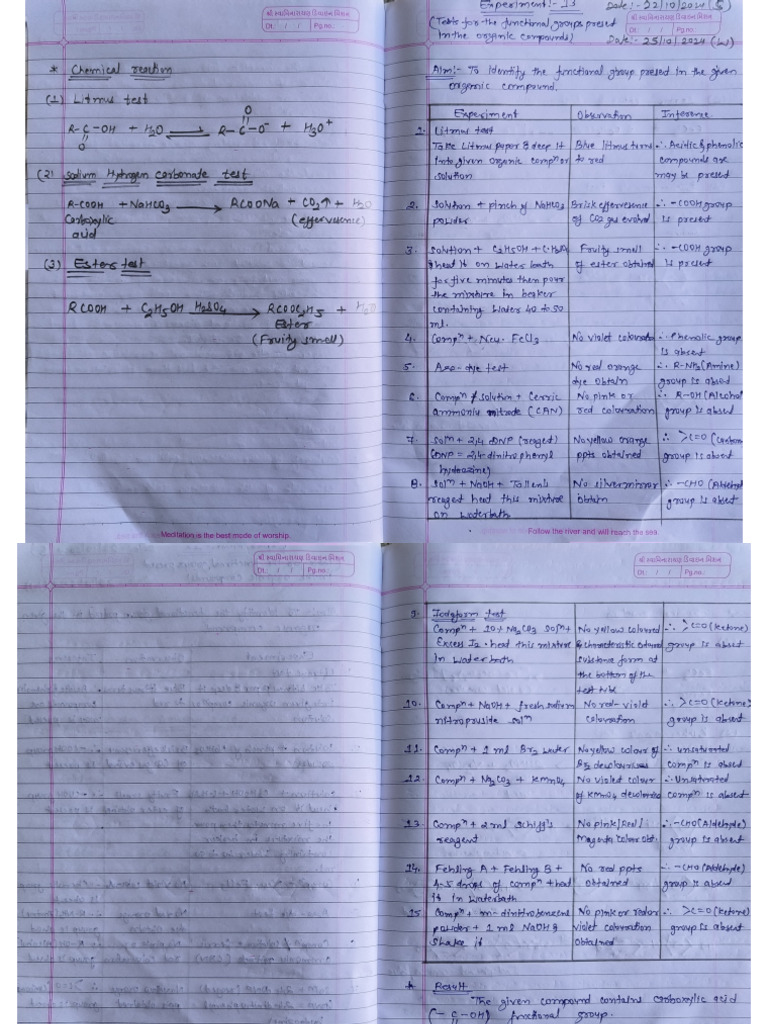 શ્રી સ્વામિનારાયણ
Dt. / / Pg.no.:
* Chemical reaction
(1) Litmus test
R-C-OH + H2O ⇌ R-C-O⁻ + H3O⁺
O
O
(2) Sodium Hydrogen carbonate test
R-COOH + NaHCO3 → RCOONa + CO2↑ + H2O
Carboxylic (effervesence)
acid
(3) Esters test
RCOOH + C2H5OH H2SO4 → RCOOC2H5 + H2O
Ester
(Fruity smell)
Meditation is the best mode of worship.
Experiment:- 13 Date:- 22/10/2024 (S)
(Tests for the functional groups present
in the organic compounds) Date:- 25/10/2024 (W)
શ્રી સ્વામિનારાયણ
Dt. / / Pg.no.:
Aim:- To identify the functional group present in the given
organic compound.
Experiment Observation Inference
1. Litmus test
Take Litmus paper & deep it Blue litmus turns ∴ Acidic & phenolic
into given organic compn or to red compounds are
solution may be present
2. Solution + pinch of NaHCO3 Brisk effervesence ∴ -COOH group
powder of CO2 gas evolved is present
3. Solution + C2H5OH + C.H2SO4 Fruity smell ∴ -COOH group
& heat it on water bath of ester obtained is present
for five minutes then pour
the mixture in beaker
containing water 40 to 50
ml.
4. Compn + Neu. FeCl3 No violet colouration ∴ Phenolic group
is absent
5. Azo-dye test No red orange ∴ R-NH2 (Amine)
dye obtain group is absent
6. Compn / solution + Cerric No pink or ∴ R-OH (Alcohol
ammonium nitrade (CAN) red colouration group is absent
7. Soln + 2,4 DNP (reagent) No yellow orange ∴ >C=O (Carbon
(DNP = 2,4-dinitrophenyl ppts obtained group is absent
hydrazine)
8. Soln + NaOH + Tollen's No silver mirror ∴ -CHO (Aldehyd
reagent heat this mixture obtain group is absent
on waterbath
Follow the river and will reach the sea.
શ્રી સ્વામિનારાયણ
Dt. / / Pg.no.:
શ્રી સ્વામિનારાયણ
Dt. / / Pg.no.:
9. Iodoform test
Compn + 10% Na2CO3 soln + No yellow coloured ∴ >C=O (ketone)
Excess I2. heat this mixture & characteristic group is absent
in water bath substance form at
the bottom of the
test tube
10. Compn + NaOH + fresh sodium No red-violet ∴ >C=O (ketone)
nitropruside soln colouration group is absent
11. Compn + 1 ml Br2 water No yellow colour of ∴ unsaturated
Br2 decolourises compn is absent
12. Compn + Na2CO3 + KMnO4 No violet colour ∴ Unsaturated
of KMnO4 compn is absent
13. Compn + 2 ml Schiff's No pink/Red/ ∴ -CHO (Aldehyde)
reagent Magenta colour obt. group is absent
14. Fehling A + Fehling B + No red ppts ∴ -CHO (Aldehyde)
4-5 drops of compn & heat obtained group is absent
it in waterbath
15. Compn + m-dinitrobenzene No pink or red or ∴ >C=O (ketone)
powder + 1 ml NaOH & violet colouration group is absent
shake it obtained
* Result
The given compound contains carboxylic acid
(-C-OH) functional group.